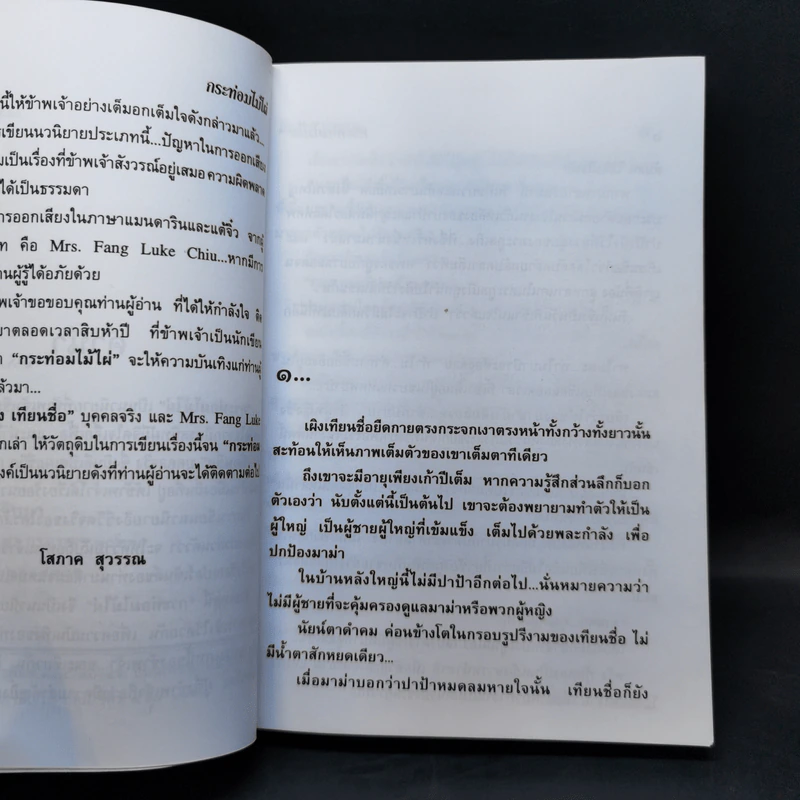 กระท่อมไม้ไผ่
นี้ให้ข้าพเจ้าอย่างเต็มอกเต็มใจดังกล่าวมาแล้ว...
เขียนนวนิยายประเภทนี้...ปัญหาในการออกเสียง
เป็นเรื่องที่ข้าพเจ้าสังวรณ์อยู่เสมอ ความผิดพลาด
ได้เป็นธรรมดา
การออกเสียงในภาษาแมนดารินและแต้จิ๋ว จาก
คือ Mrs. Fang Luke Chiu...หากมีการ
ผู้รู้ได้อภัยด้วย
ข้าพเจ้าขอขอบคุณท่านผู้อ่าน ที่ได้ให้กำลังใจ
ตลอดเวลาสิบห้าปี ที่ข้าพเจ้าเป็นนักเขียน
"กระท่อมไม้ไผ่" จะให้ความบันเทิงแก่ท่าน
แล้วมา...
เทียนชื่อ" บุคคลจริง และ Mrs. Fang Luke
เล่า ให้วัตถุดิบในการเขียนเรื่องนี้จน "กระท่อม
เป็นนวนิยายดังที่ท่านผู้อ่านจะได้ติดตามต่อไป
โสภาค สุวรรณ
๑...
เผิงเทียนชื่อยืดกายตรงกระจกเงาตรงหน้าทั้งกว้างทั้งยาวนั้น
สะท้อนให้เห็นภาพเต็มตัวของเขาเต็มตาทีเดียว
ถึงเขาจะมีอายุเพียงเก้าปีเต็ม หากความรู้สึกส่วนลึกก็บอก
ตัวเองว่า นับตั้งแต่นี้เป็นต้นไป เขาจะต้องพยายามทำตัวให้เป็น
ผู้ใหญ่ เป็นผู้ชายผู้ใหญ่ที่เข้มแข็ง เต็มไปด้วยพละกำลัง เพื่อ
ปกป้องมาม่า
ในบ้านหลังใหญ่นี้ไม่มีปาป้าอีกต่อไป...นั่นหมายความว่า
ไม่มีผู้ชายที่จะคุ้มครองดูแลมาม่าหรือพวกผู้หญิง
นัยน์ตาดำคม ค่อนข้างโตในกรอบรูปรีงามของเทียนชื่อ ไม่
มีน้ำตาสักหยดเดียว...
เมื่อมาม่าบอกว่าปาป้าหมดลมหายใจนั้น เทียนชื่อก็ยัง